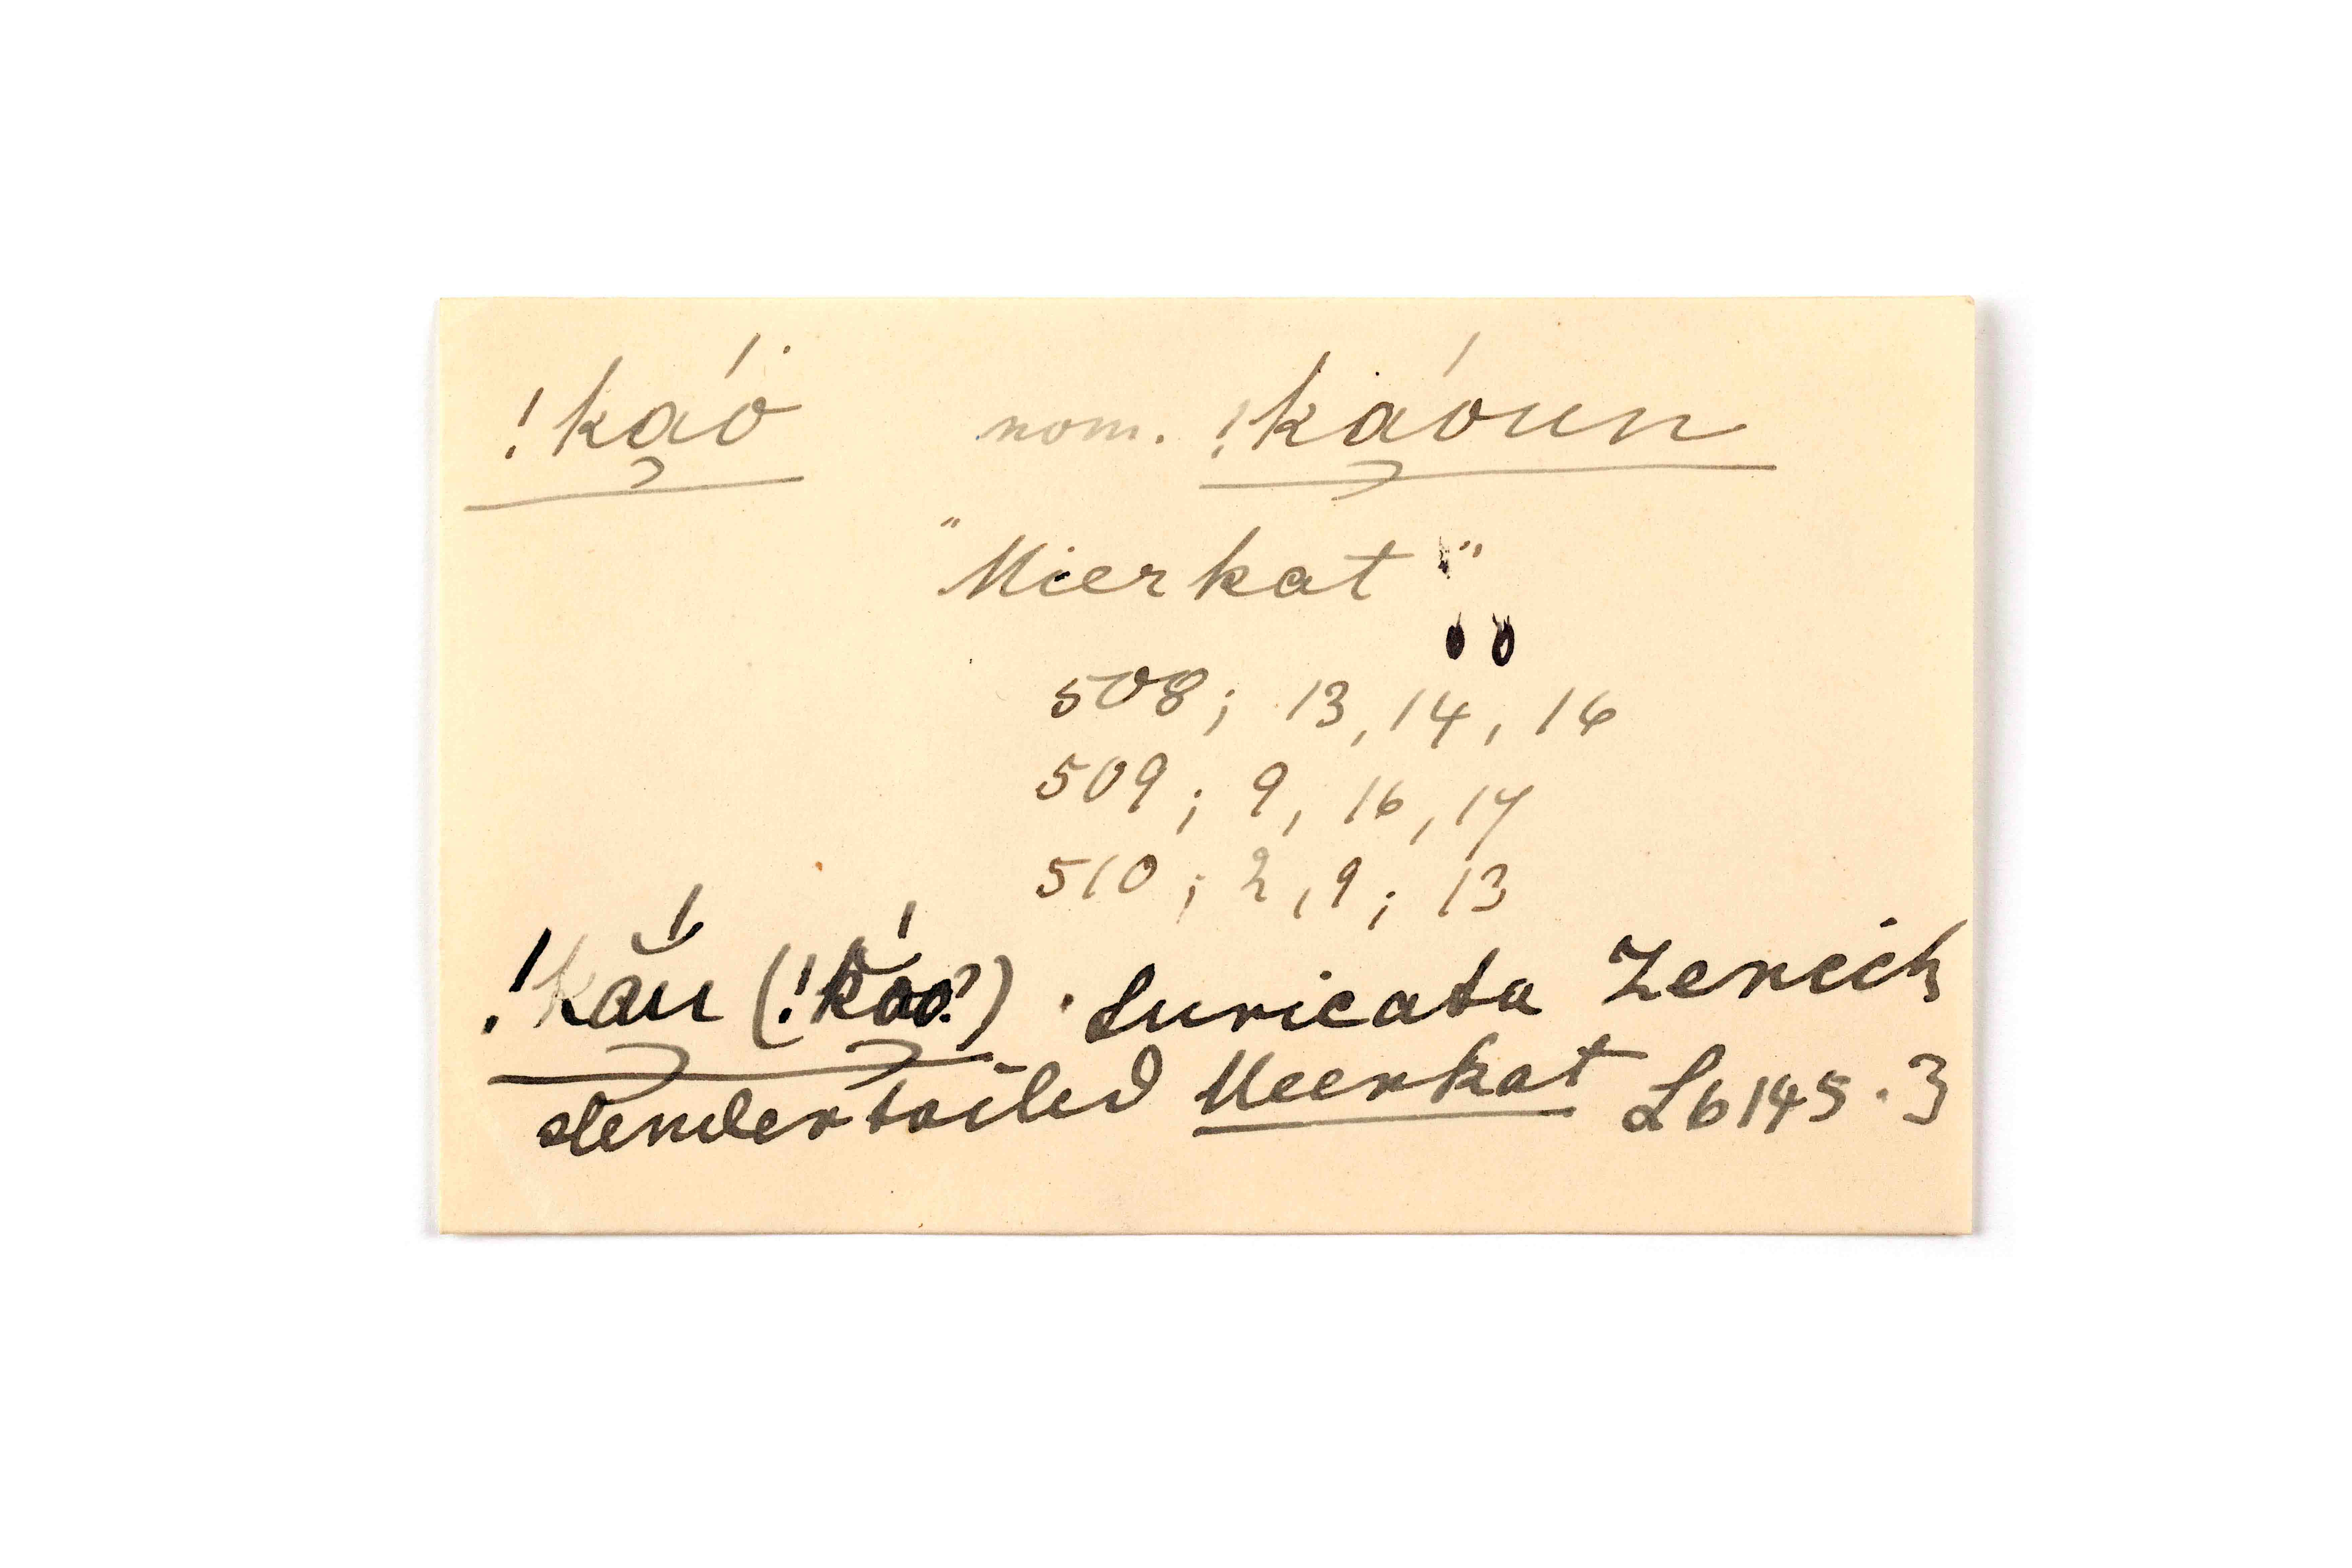 !ka̠ó nom. !ka̠óun
"Mierkat"
508; 13, 14, 16
509; 9, 16, 17
510; 2, 9; 13
!kắu (!kắo?) . Suricata Zenick
slendertailed Meerkat L b 145.3